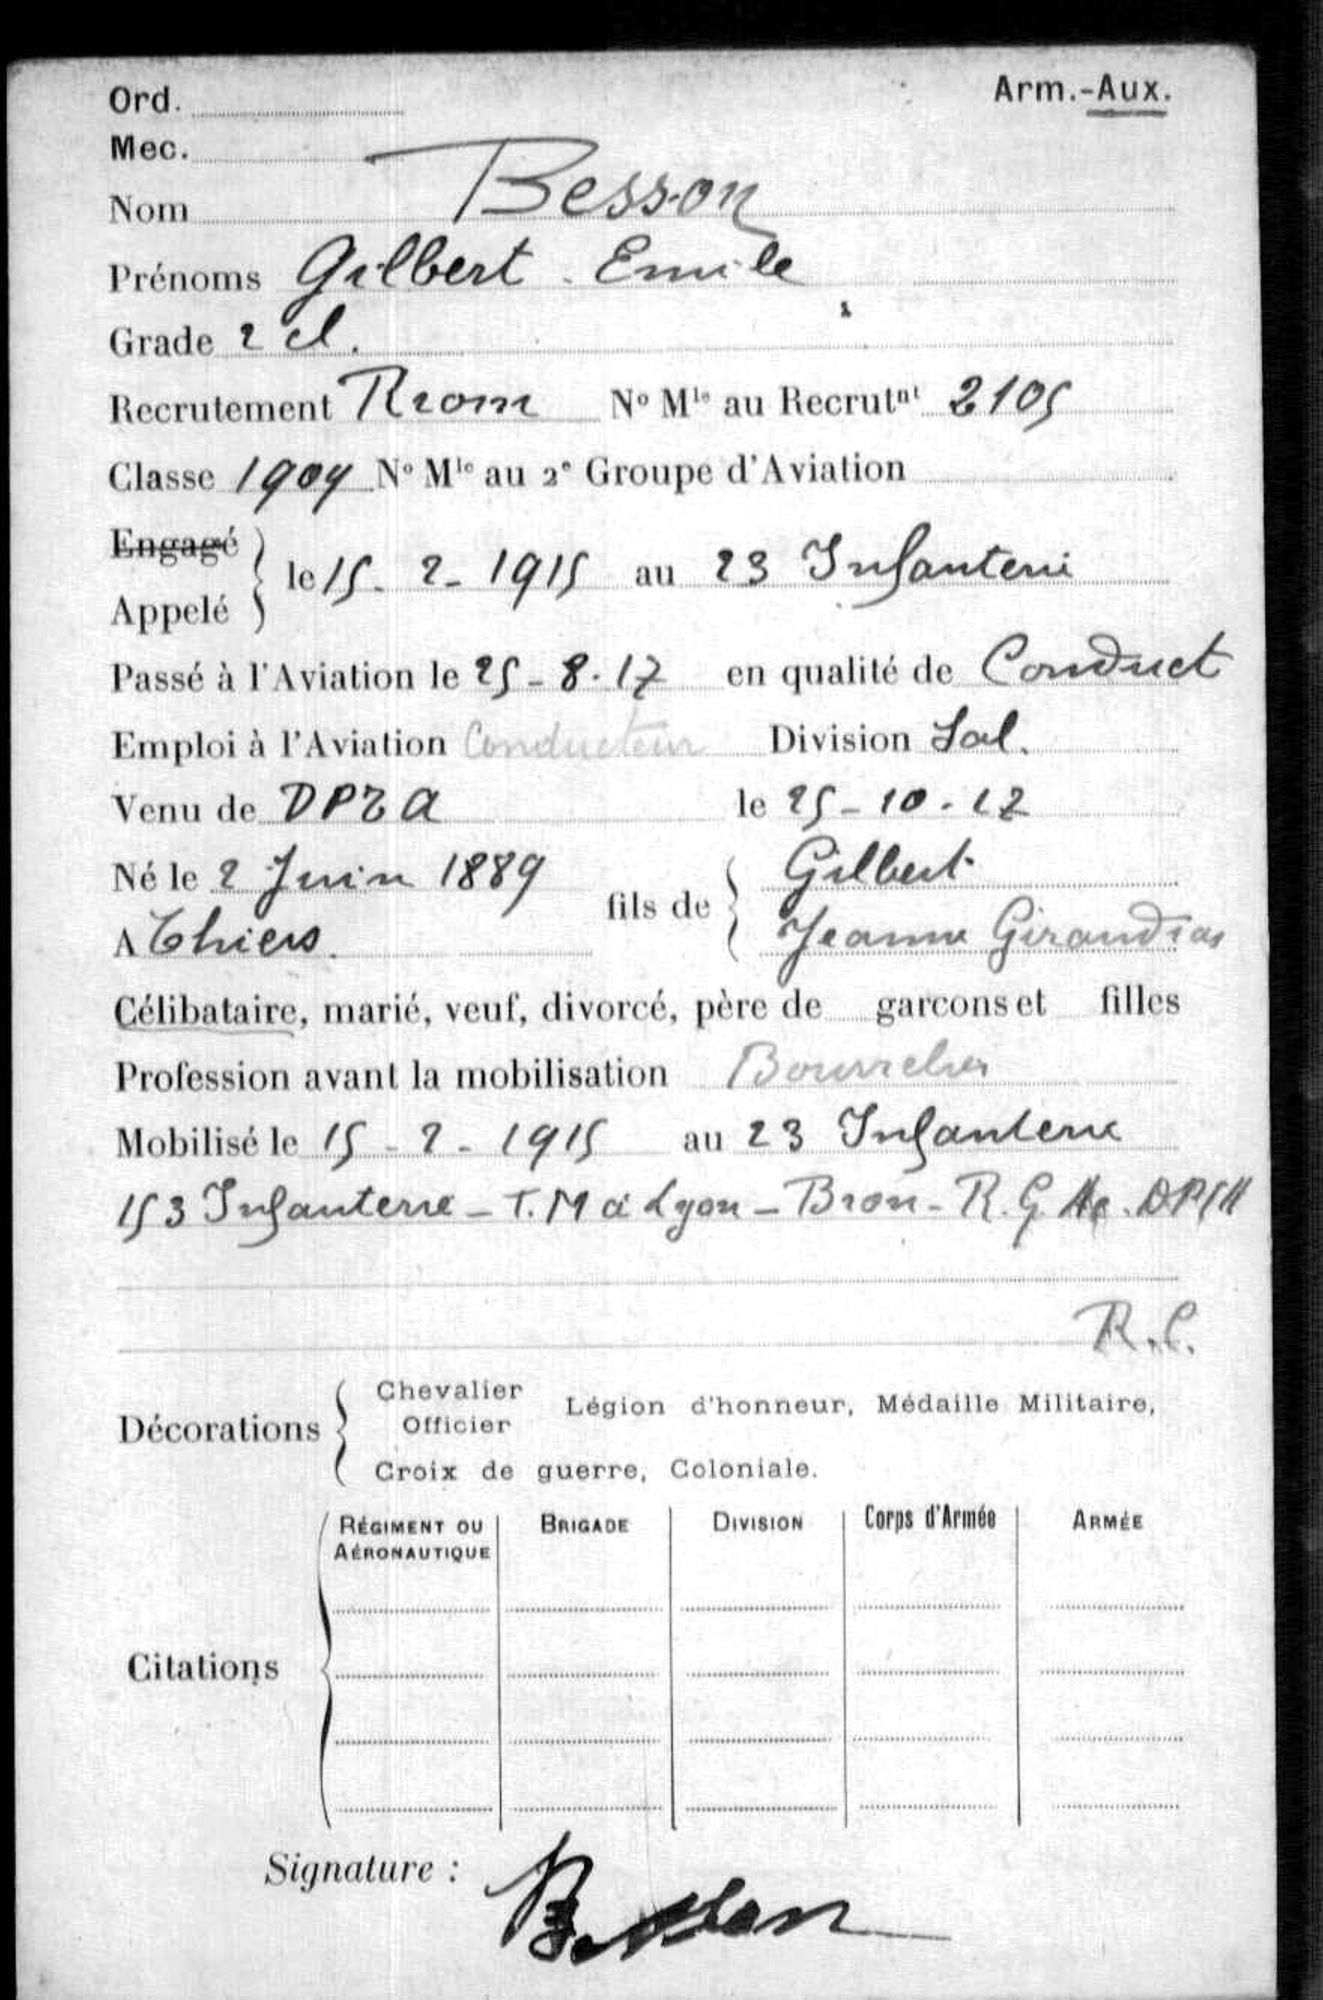 Ord. Arm.-Aux.
Mec.
Nom Besson
Prénoms Gilbert Emile
Grade 2 cl.
Recrutement Riom N° Mle au Recrutnt 2105
Classe 1909 N° Mle au 2e Groupe d'Aviation
Engagé
le 15 - 2 - 1915 au 23 Infanterie
Appelé
Passé à l'Aviation le 25 - 8 - 17 en qualité de Conduct
Emploi à l'Aviation Conducteur Division Sal.
Venu de le 25 - 10 - 17
Né le 2 Juin 1889 Gilbert
fils de
A Thiers. Jeanne Giraudias
Célibataire, marié, veuf, divorcé, père de garcons et filles
Profession avant la mobilisation Bourrelier
Mobilisé le 15 - 2 - 1915 au 23 Infanterie
153 Infanterie - T.M à Lyon - Bron - R.G.
R.C.
Chevalier
Légion d'honneur, Médaille Militaire,
Décorations Officier
Croix de guerre, Coloniale.
RÉGIMENT OU BRIGADE DIVISION Corps d'Armée ARMÉE
AÉRONAUTIQUE
Citations
Signature :
Besson